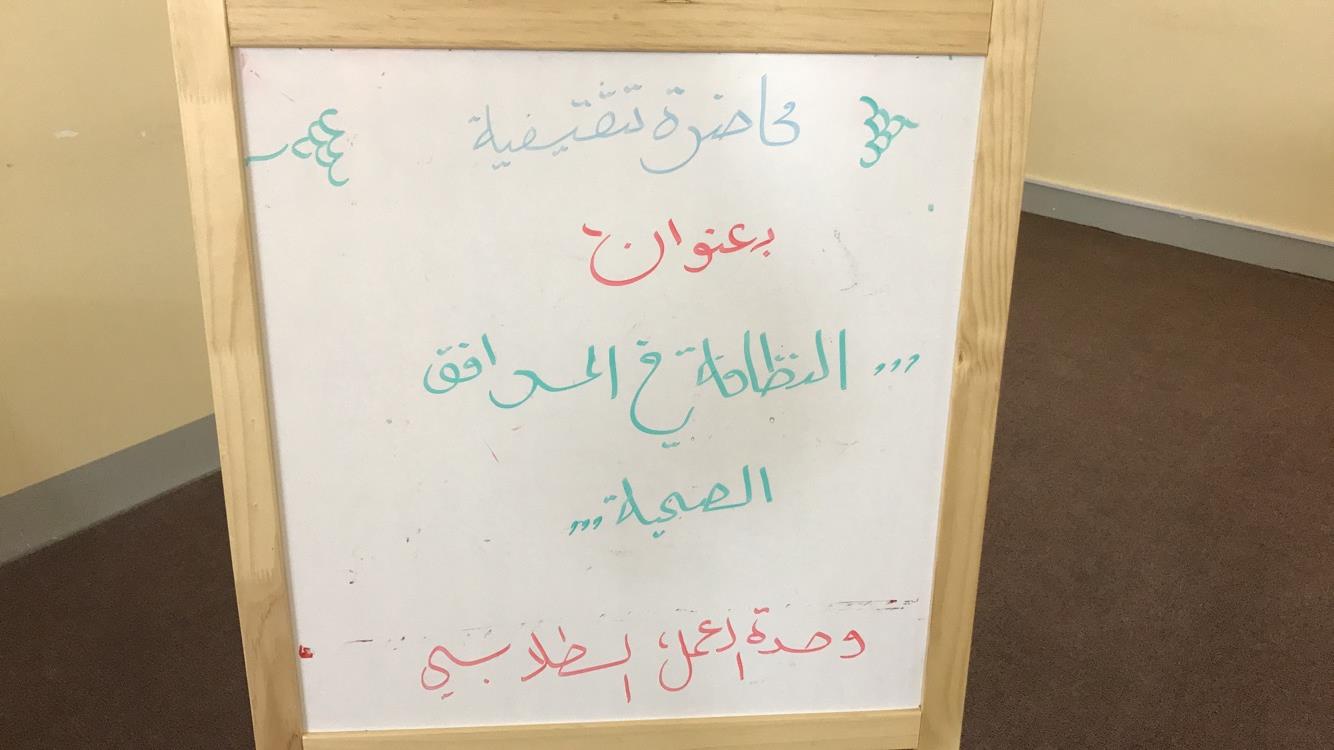 محاضرة تثقيفية
بعنوان
,,, النظافة في المرافق
الصحية ,,,
وحدة العمل الطلابي